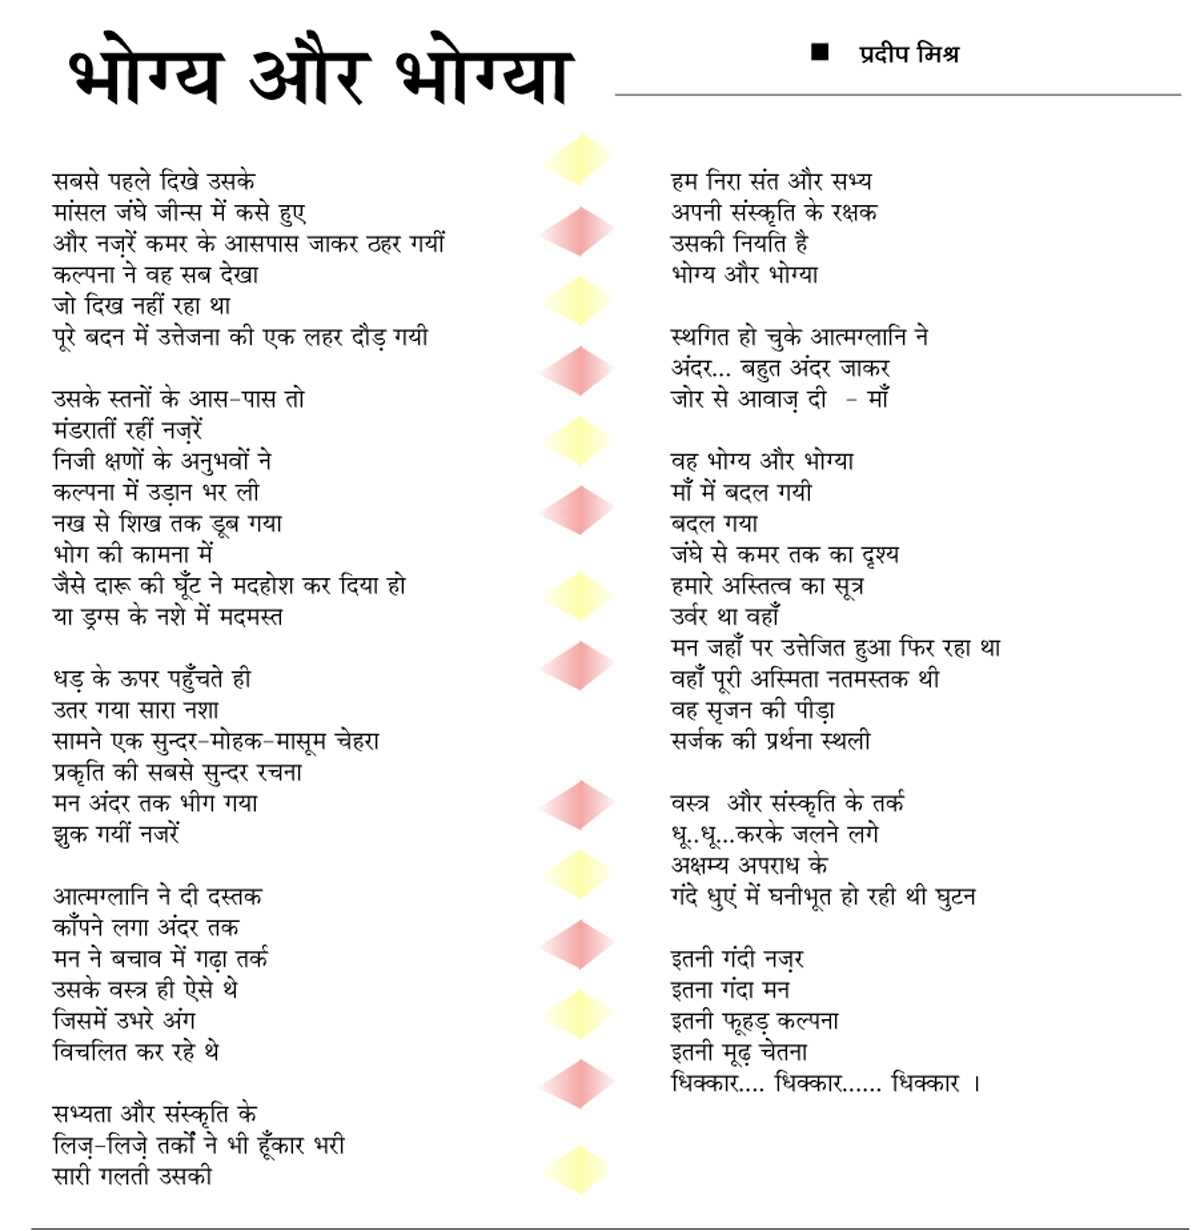 भोग्य और भोग्या
■ प्रदीप मिश्र
सबसे पहले दिखे उसके
मांसल जंघे जीन्स में कसे हुए
और नज़रें कमर के आसपास जाकर ठहर गयीं
कल्पना ने वह सब देखा
जो दिख नहीं रहा था
पूरे बदन में उत्तेजना की एक लहर दौड़ गयी
उसके स्तनों के आस-पास तो
मंडरातीं रहीं नज़रें
निजी क्षणों के अनुभवों ने
कल्पना में उड़ान भर ली
नख से शिख तक डूब गया
भोग की कामना में
जैसे दारू की घूँट ने मदहोश कर दिया हो
या ड्रग्स के नशे में मदमस्त
धड़ के ऊपर पहुँचते ही
उतर गया सारा नशा
सामने एक सुन्दर-मोहक-मासूम चेहरा
प्रकृति की सबसे सुन्दर रचना
मन अंदर तक भीग गया
झुक गयीं नजरें
आत्मग्लानि ने दी दस्तक
काँपने लगा अंदर तक
मन ने बचाव में गढ़ा तर्क
उसके वस्त्र ही ऐसे थे
जिसमें उभरे अंग
विचलित कर रहे थे
सभ्यता और संस्कृति के
लिज़-लिज़े तर्कों ने भी हूँकार भरी
सारी गलती उसकी
हम निरा संत और सभ्य
अपनी संस्कृति के रक्षक
उसकी नियति है
भोग्य और भोग्या
स्थगित हो चुके आत्मग्लानि ने
अंदर... बहुत अंदर जाकर
जोर से आवाज़ दी - माँ
वह भोग्य और भोग्या
माँ में बदल गयी
बदल गया
जंघे से कमर तक का दृश्य
हमारे अस्तित्व का सूत्र
उर्वर था वहाँ
मन जहाँ पर उत्तेजित हुआ फिर रहा था
वहाँ पूरी अस्मिता नतमस्तक थी
वह सृजन की पीड़ा
सर्जक की प्रर्थना स्थली
वस्त्र और संस्कृति के तर्क
धू..धू...करके जलने लगे
अक्षम्य अपराध के
गंदे धुएं में घनीभूत हो रही थी घुटन
इतनी गंदी नज़र
इतना गंदा मन
इतनी फूहड़ कल्पना
इतनी मूढ़ चेतना
धिक्कार.... धिक्कार...... धिक्कार ।